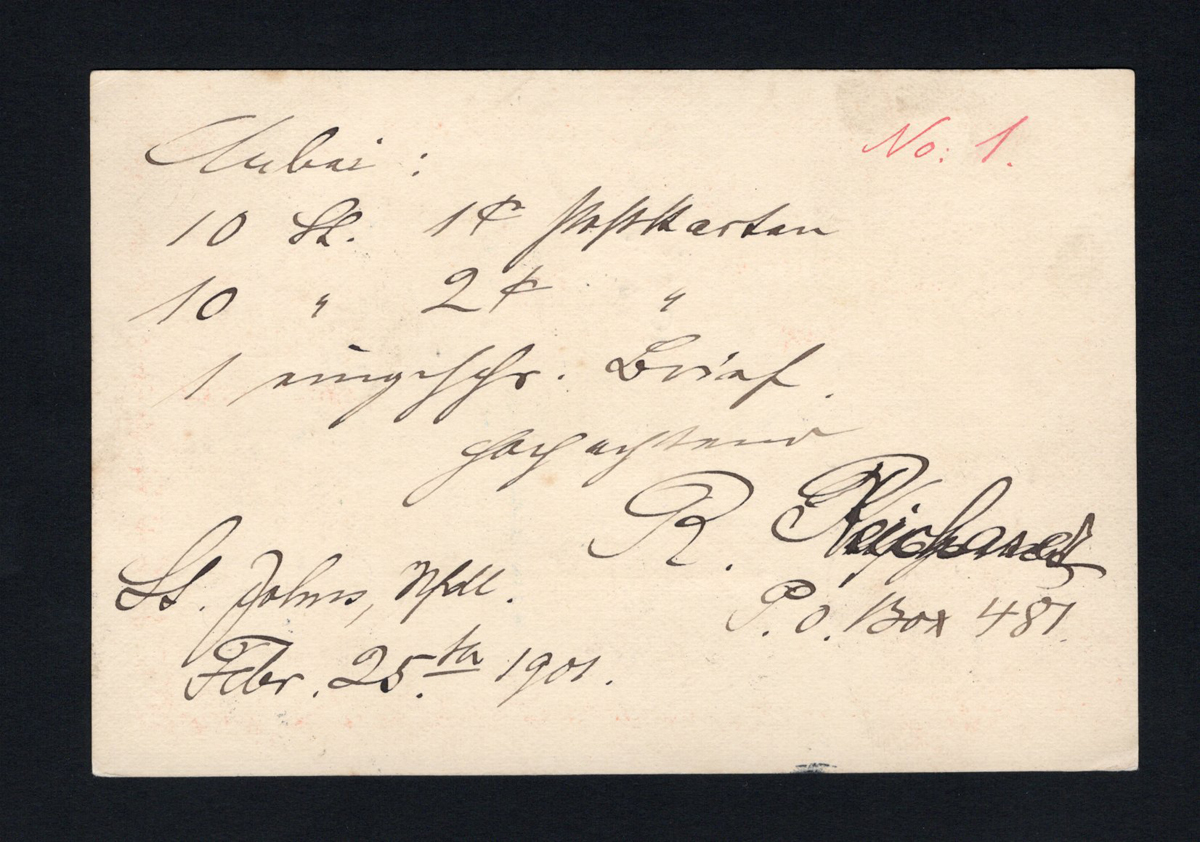 No: 1.
Anbei:
10 St. 1¢ Postkarten
10 " 2¢ "
1 eingeschr. Brief.
Hochachtend
R. Reichard
P.O. Box 487.
St. Johns, Nfdl.
Febr. 25.th 1901.